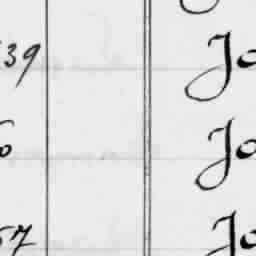 39 Jo
6 Jo
57 Jo